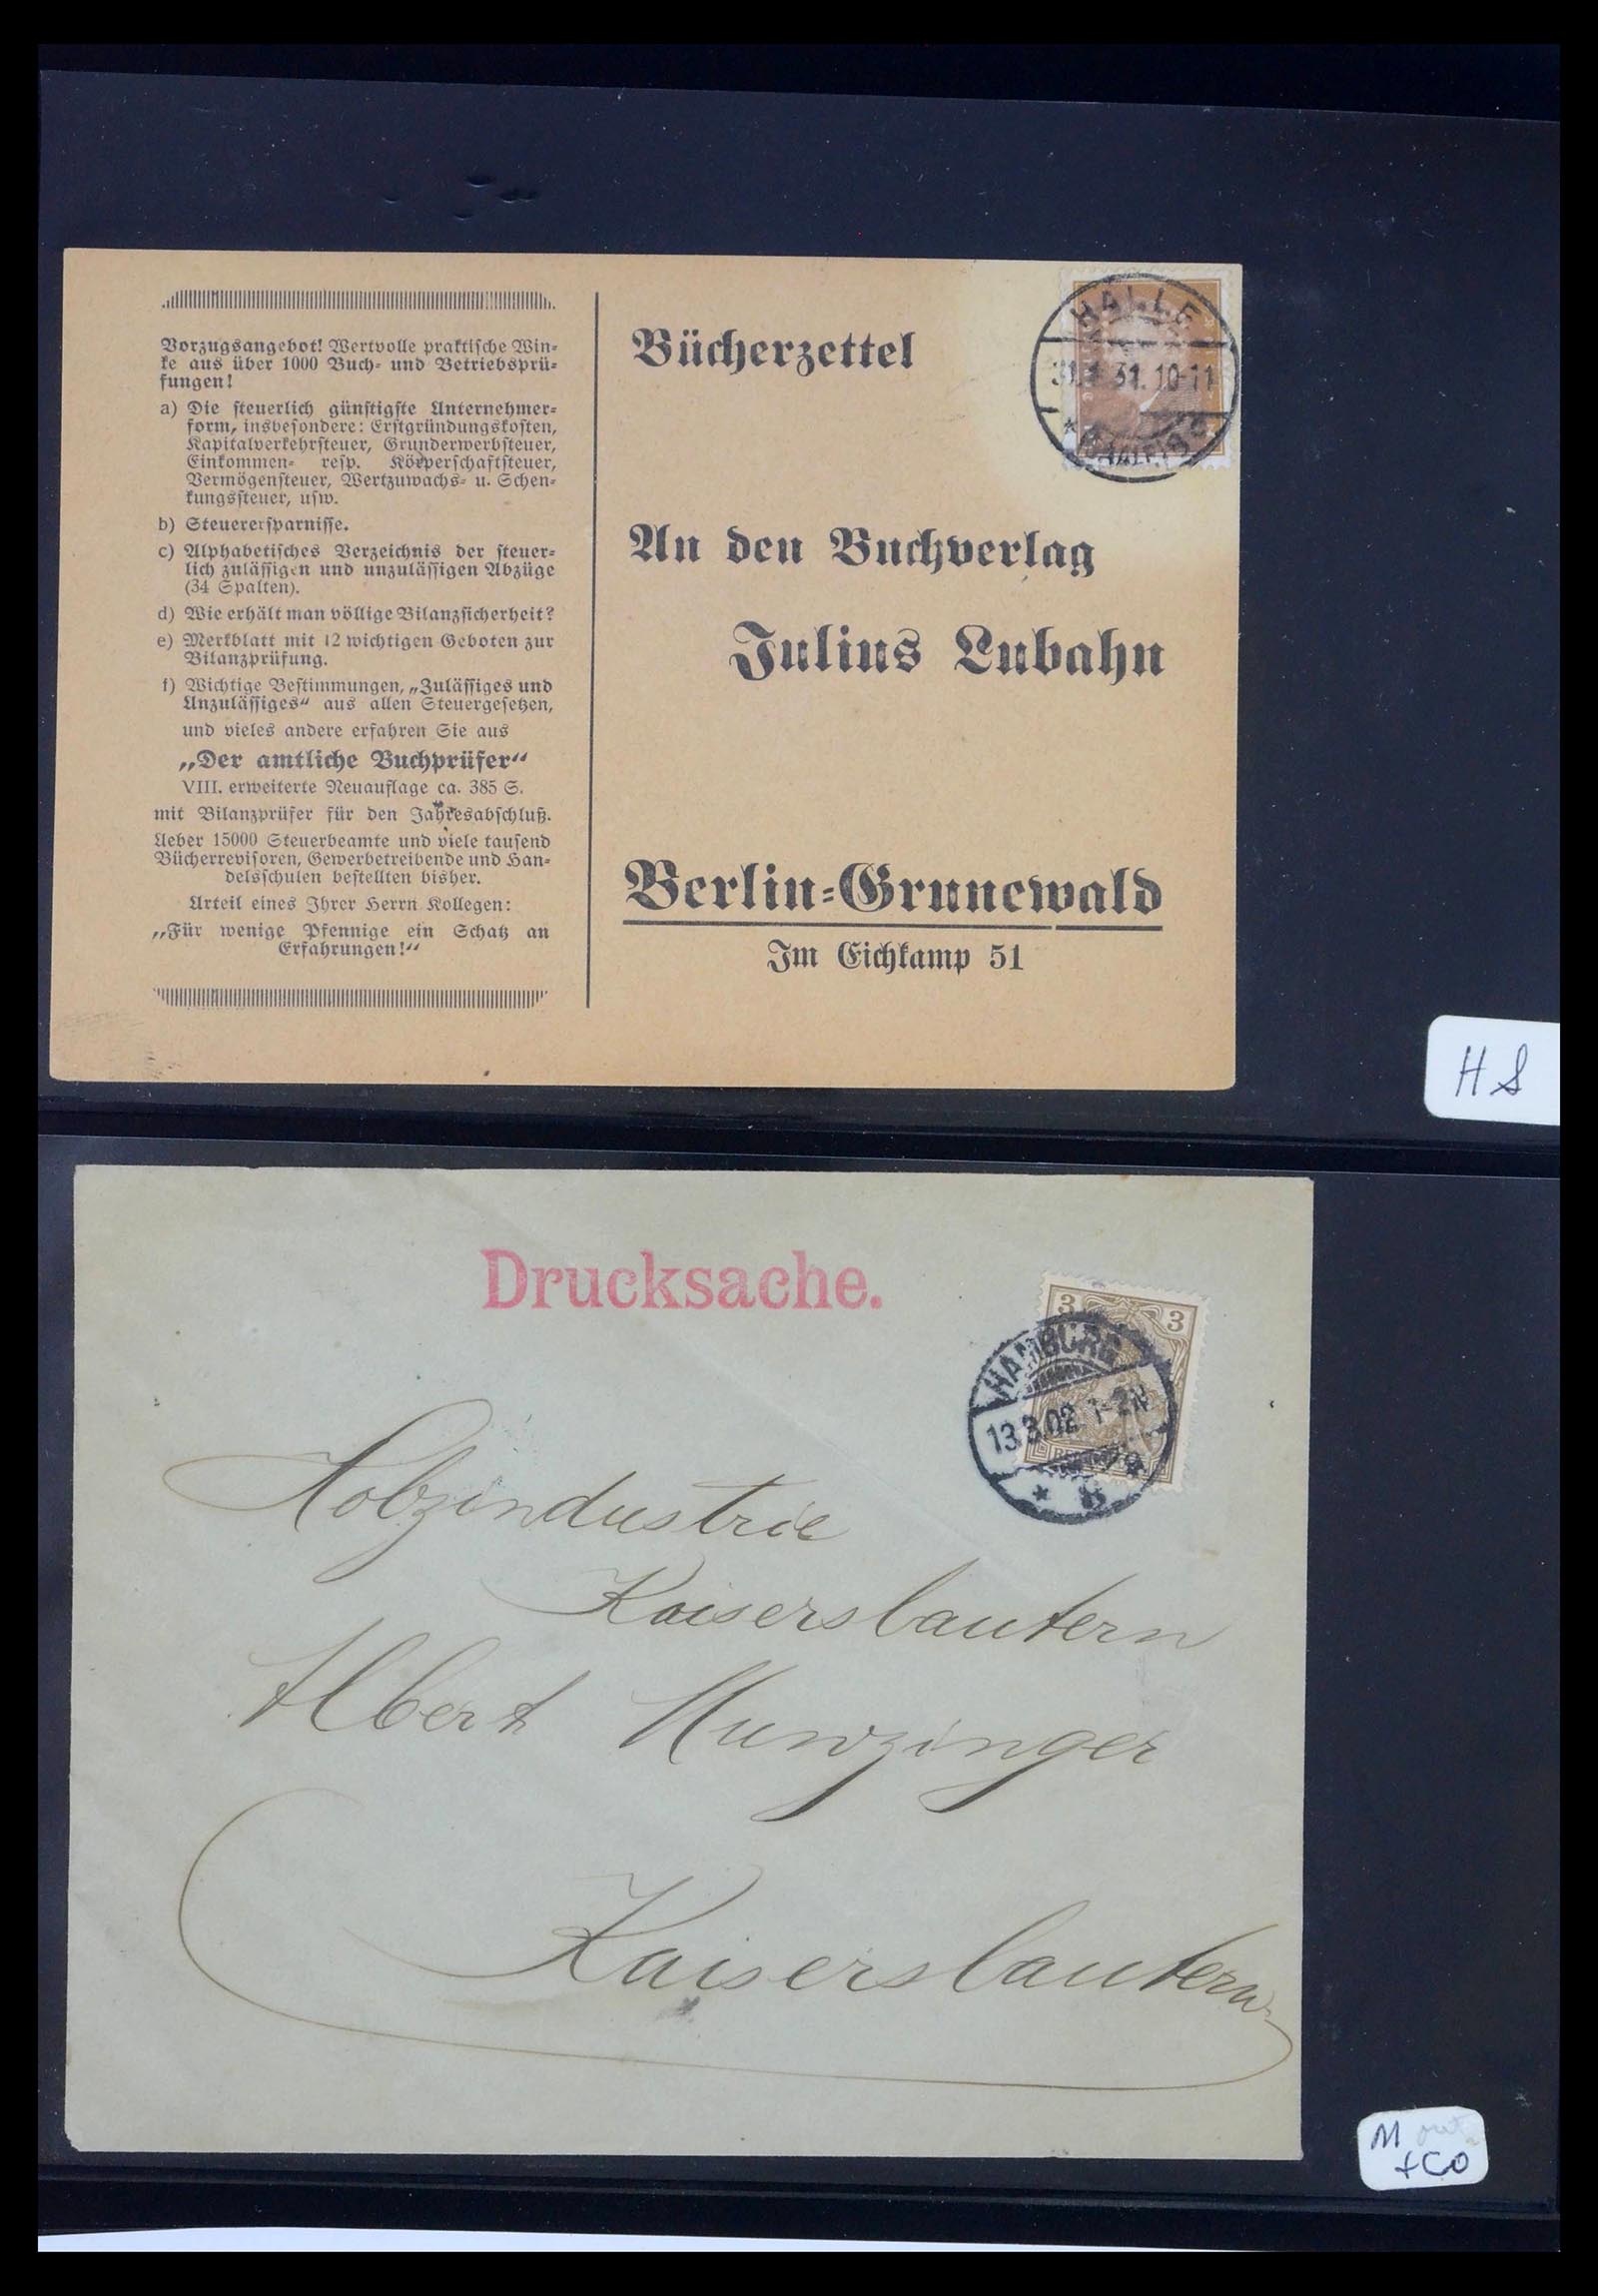 Vorzugsangebot! Wertvolle praktische Win-
ke aus über 1000 Buch- und Betriebsprü-
fungen!
a) Die steuerlich günstigste Unternehmer-
form, insbesondere: Erstgründungskosten,
Kapitalverkehrsteuer, Grunderwerbsteuer,
Einkommen- resp. Körperschaftsteuer,
Vermögensteuer, Wertzuwachs- u. Schen-
kungssteuer, usw.
b) Steuerersparnisse.
c) Alphabetisches Verzeichnis der steuer-
lich zulässigen und unzulässigen Abzüge
(34 Spalten).
d) Wie erhält man völlige Bilanzsicherheit?
e) Merkblatt mit 12 wichtigen Geboten zur
Bilanzprüfung.
f) Wichtige Bestimmungen, „Zulässiges und
Unzulässiges“ aus allen Steuergesetzen,
und vieles andere erfahren Sie aus
„Der amtliche Buchprüfer“
VIII. erweiterte Neuauflage ca. 385 S.
mit Bilanzprüfer für den Jahresabschluß.
Ueber 15000 Steuerbeamte und viele tausend
Bücherrevisoren, Gewerbetreibende und Han-
delsschulen bestellten bisher.
Urteil eines Ihrer Herrn Kollegen:
„Für wenige Pfennige ein Schatz an
Erfahrungen!“
Bücherzettel
HALLE
31. 10-11
An den Buchverlag
Julius Lubahn
Berlin-Grunewald
Im Eichkamp 51
H S
Drucksache.
3 3
HAMBURG
13.3.02. 1-2N
Holzindustrie
Kaiserslautern
Albert Munzinger
Kaiserslautern
M
+CO